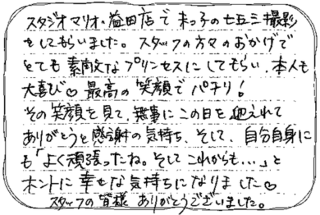 スタジオマリオ益田店で末っ子の七五三撮影
をしてもらいました。スタッフの方々のおかげで
とても素敵なプリンセスにしてもらい、本人も
大喜び♡最高の笑顔でパチリ!
その笑顔を見て、無事にこの日を迎えれて
ありがとうと感謝の気持ち、そして、自分自身に
も「よく頑張ったね。そしてこれからも...」と
ホントに幸せな気持ちになりました♡
スタッフの皆様ありがとうございました。